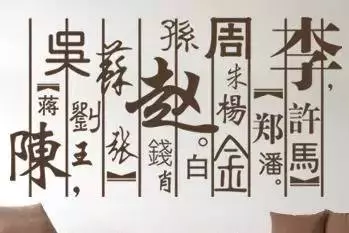 李，
許馬
【郑潘。
周
朱楊
金
孫
赵。
白
錢肖
蘇
张】
吳
劉王，
【蒋
陳